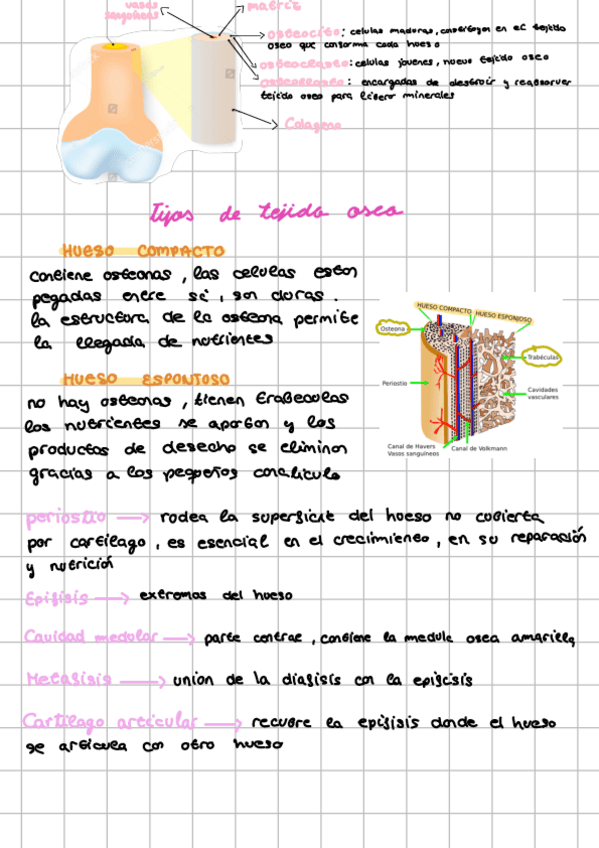 vasos
sanguineos
matriz
osteocito: celulas maduras, construyen en el tejido
oseo que conforma cada hueso
osteoclasto: celulas jovenes, nuevo tejido oseo
: encargadas de destruir y reabsorver
tejido oseo para liberar minerales
Colageno
tipos de tejido oseo
HUESO COMPACTO
contiene osteonas, las celulas estan
pegadas entre si, son duras.
la estructura de la osteona permite
la llegada de nutrientes
HUESO COMPACTO
HUESO ESPONJOSO
Osteona
Trabéculas
Periostio
Cavidades
vasculares
Canal de Havers
Vasos sanguíneos
Canal de Volkmann
HUESO ESPONJOSO
no hay osteonas, tienen trabeculas
los nutrientes se aportan y los
productos de desecho se eliminan
gracias a los pequeños canaliculo
periostio → rodea la superficie del hueso no cubierta
por cartilago, es esencial en el crecimiento, en su reparación
y nutrición
Epifisis → extremos del hueso
Cavidad medular → parte central, contiene la medula osea amarilla
Metafisis → union de la diafisis con la epifisis
Cartilago articular → recubre la epifisis donde el hueso
se articula con otro hueso